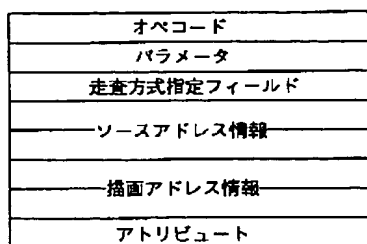 オペコード
パラメータ
走査方式指定フィールド
ソースアドレス情報
描画アドレス情報
アトリビュート